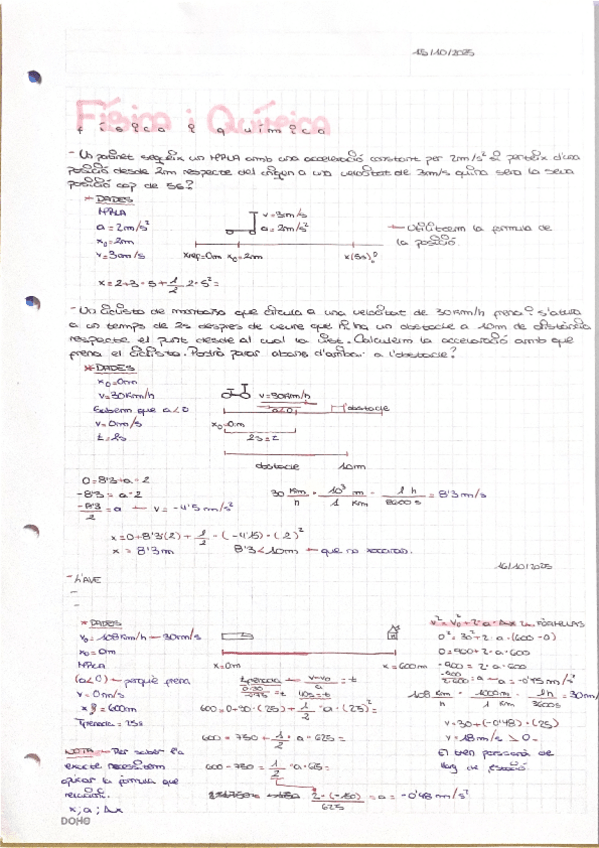 15/10/2025
Física i Química
física i química
- Un patinet segueix un MRUA amb una acceleració constant per 2m/s² si parteix d'una
posició desde 2m respecte del origen a una velocitat de 3m/s quina serà la seva
posició cap de 5s?
* DADES
MRUA
a = 2m/s²
x₀ = 2m
v = 3m/s
v = 3m/s
a = 2m/s²
Xref = 0m x₀ = 2m x(5s)?
— Utilitzem la formula de
la posició.
x = 2 + 3 · 5 + 1/2 2 · 5² =
- Un ciclista de montaña que circula a una velocitat de 30Km/h frena? s'atura
a un temps de 2s despres de veure que hi ha un obstacle a 10m de distància
respecte el punt desde al cual la vist. Calculem la acceleració amb que
frena el ciclista. Podrà parar abans d'arribar a l'obstacle?
* DADES
x₀ = 0m
v = 30Km/h
Sabem que a<0
v = 0m/s
t = 2s
v = 30Km/h
a<0
obstacle
x₀ = 0m
2s = t
obstacle 10m
0 = 8'3 + a · 2
-8'3 = a · 2
-8'3/2 = a — v = -4'15 m/s²
30 Km/h · 10³ m/1 Km · 1 h/3600s = 8'3 m/s
x = 0 + 8'3(2) + 1/2 · (-4'15) · (2)²
x = 8'3m 8'3 < 10m — que no xocarà.
16/10/2025
- L'AVE
-
-
* DADES
v₀ = 108Km/h — 30m/s
x₀ = 0m
MRUA
(a<0) — perquè frena
v = 0m/s
x = 600m
Tfrenada = 25s
NOTA — Per saber la
necessitem
aplicar la formula que
x; a; Δx
x = 0m x = 600m
t frenada = v-v₀/a = t
40s = t
600 = 0 + 30 · (25) + 1/2 · a · (25)² =
600 = 750 + 1/2 · a · 625 =
600 - 750 = 1/2 · a · 625 =
2 · (-150)/625 = a = -0'48 m/s²
v² = v₀² + 2 · a · Δx FÓRMULAS
0² = 30² + 2 · a · (600 - 0)
0 = 900 + 2 · a · 600
-900 = 2 · a · 600
108 Km/h · 1000m/1 Km · 1h/3600s = 30m/s
v = 30 + (-0'48) · (25)
v = 18 m/s > 0
El tren passarà de